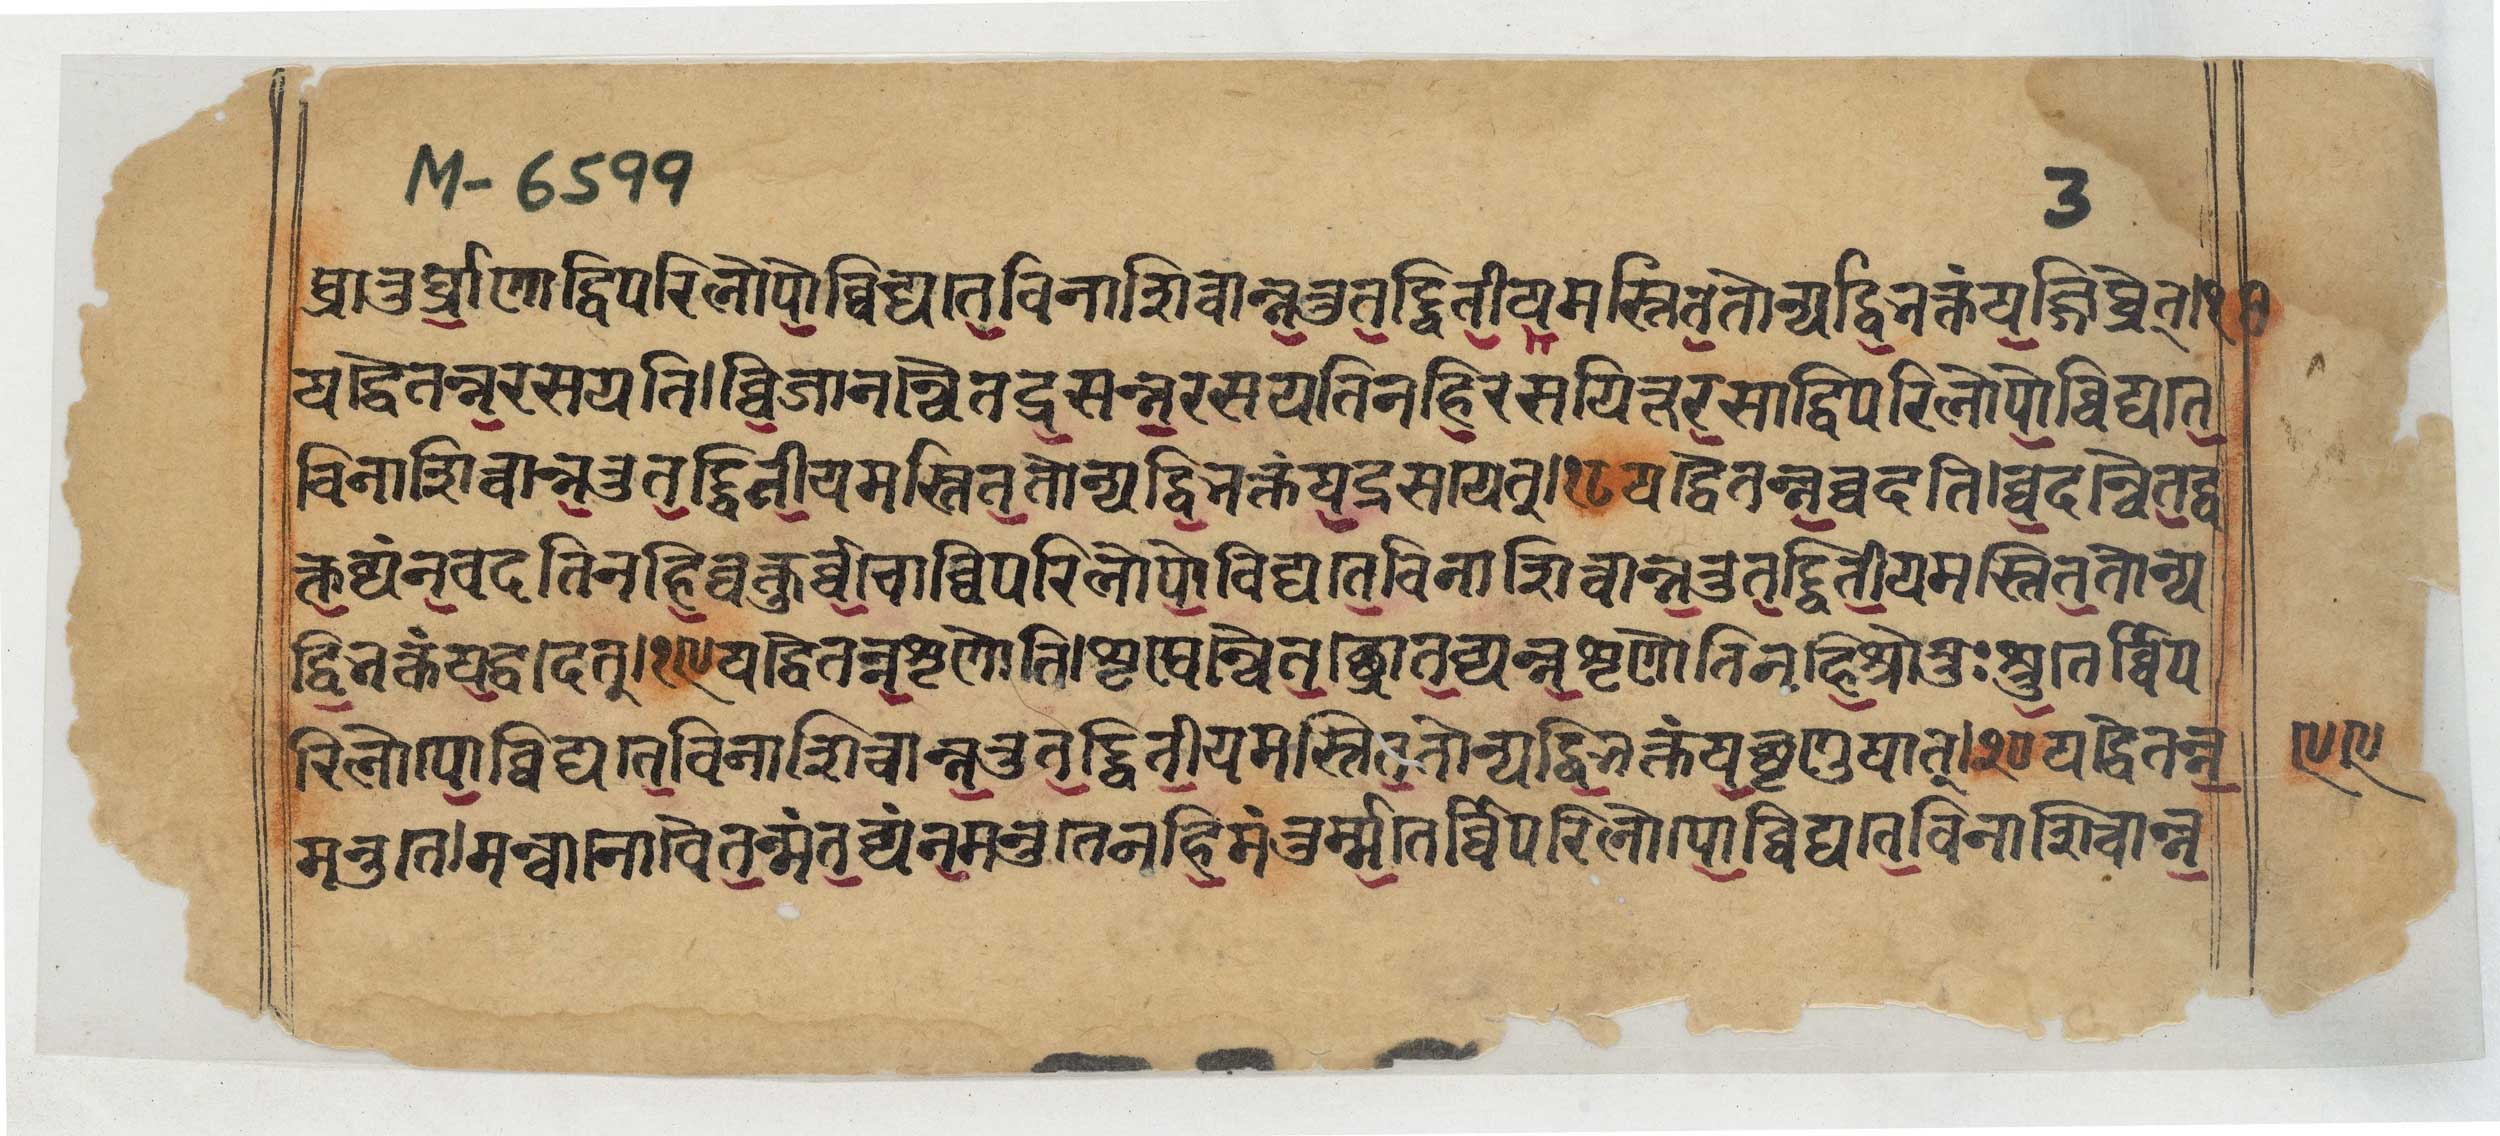 M-6599
3
घ्रातुर्घ्राणाद्विपरिलोपोव्विद्यातेविनाशित्वान्नतुतद्द्वितीयमस्तिततोन्यद्विभक्तंयज्जिघ्रेत्।१७
यद्वैतन्नरसयति।व्विजानन्वैतद्रसन्नरसयतिनहिरसयितूरसाद्विपरिलोपोव्विद्यते
विनाशित्वान्नतुतद्द्वितीयमस्तिततोन्यद्विभक्तंयद्रसयेत्।१८यद्वैतन्नव्वदति।व्वदन्वैतद्व
क्तव्यंनवदतिनहिव्वक्तुर्व्वचोव्विपरिलोपोविद्यतेविनाशित्वान्नतुतद्द्वितीयमस्तिततोन्य
द्विभक्तंयद्वदेत्।१९यद्वैतन्नशृणोति।शृण्वन्वैतच्छ्रोतव्यन्नशृणोतिनहिश्रोतुःश्रुतेर्व्विप
रिलोपोव्विद्यतेविनाशित्वान्नतुतद्द्वितीयमस्तिततोन्यद्विभक्तंयच्छृणुयात्।२०यद्वैतन्न
९९
मनुते।मन्वानोवैतन्मंतव्यंनमनुतेनहिमंतुर्म्मतेर्व्विपरिलोपोव्विद्यतेविनाशित्वान्न